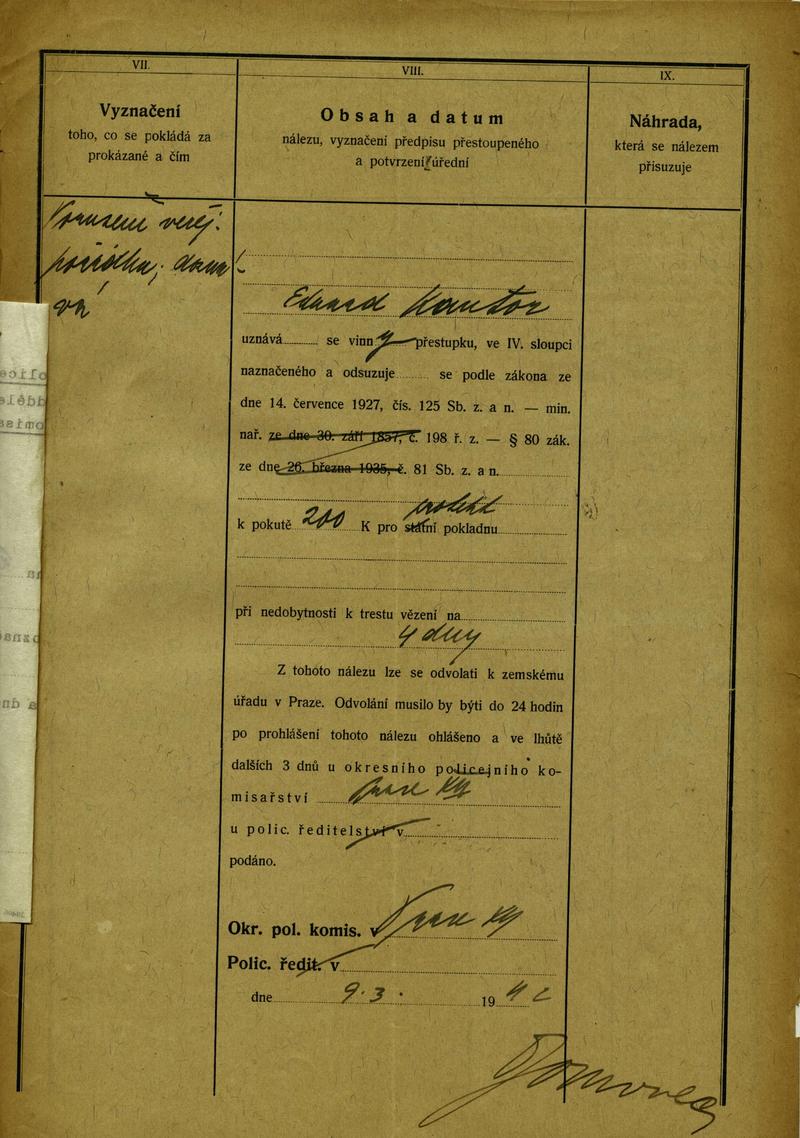 VII.
Vyznačení
toho, co se pokládá za
prokázané a čím
VIII.
Obsah a datum
nálezu, vyznačení předpisu přestoupeného
a potvrzení úřední
IX.
Náhrada,
která se nálezem
přisuzuje
veřej.
pořádku,
Eduard Kantor
uznává se vinn přestupku, ve IV. sloupci
naznačeného a odsuzuje se podle zákona ze
dne 14. července 1927, čís. 125 Sb. z. a n. — min.
nař. ze dne 30. září 1857, č. 198 ř. z. — § 80 zák.
ze dne 26. března 1935, č. 81 Sb. z. a n.
k pokutě 200 K pro státní pokladnu
při nedobytnosti k trestu vězení na
4 dny
Z tohoto nálezu lze se odvolati k zemskému
úřadu v Praze. Odvolání musilo by býti do 24 hodin
po prohlášení tohoto nálezu ohlášeno a ve lhůtě
dalších 3 dnů u okresního policejního ko-
misařství
u polic. ředitelství v
podáno.
Okr. pol. komis. v
Polic. ředit. v
dne 9. 3. 1942